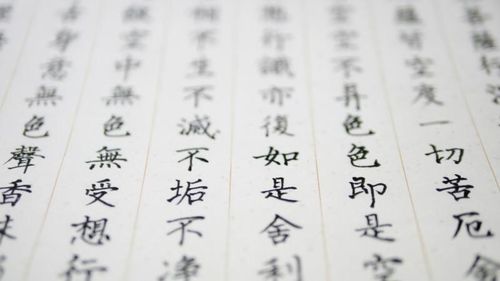 菩薩行深
蘊皆空度一切苦厄舍
空空不异色色即是空
想行識亦復如是舍利
相不生不滅不垢不淨
故空中無色無受想行
舌身意無色聲香味